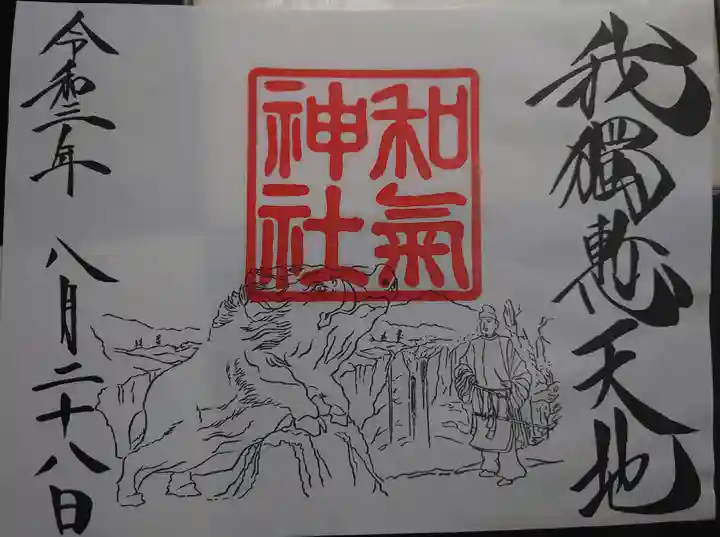 我獨慙天地
和氣
神社
令和三年 八月二十八日